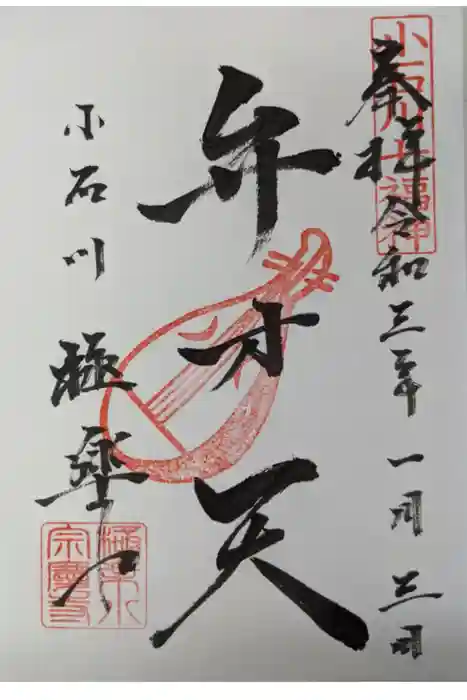 小石川七福神
奉拝 令和三年 一月 三日
弁才天
小石川 極楽水
極楽水
宗慶寺